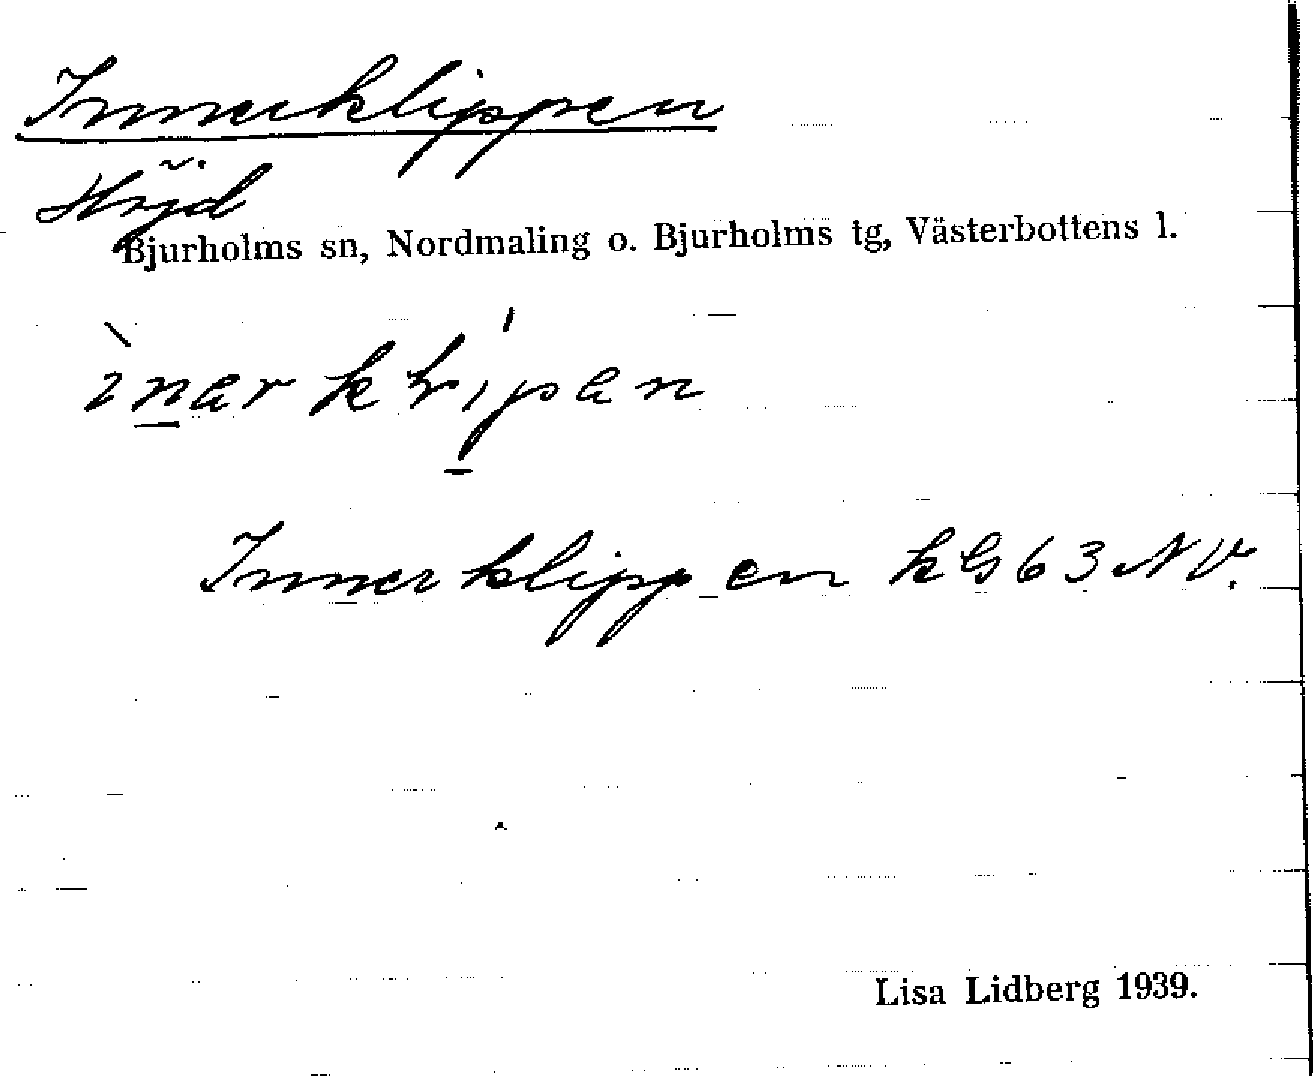 Innerklippen
Höjd
Bjurholms sn, Nordmaling o. Bjurholms tg, Västerbottens l.
Innerklippen kG 63 NV.
Lisa Lidberg 1939.